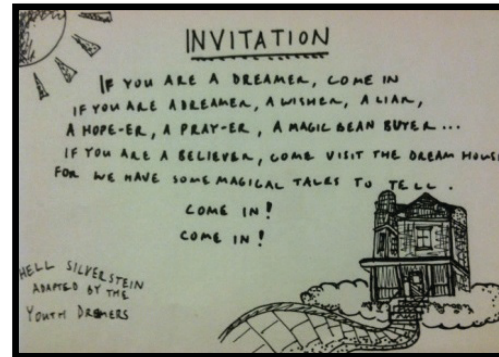 INVITATION
IF YOU ARE A DREAMER, COME IN
IF YOU ARE A DREAMER, A WISHER, A LIAR,
A HOPE-ER, A PRAY-ER, A MAGIC BEAN BUYER...
IF YOU ARE A BELIEVER, COME VISIT THE DREAM HOUSE
FOR WE HAVE SOME MAGICAL TALES TO TELL.
COME IN!
COME IN!
HELL SILVERSTEIN
ADAPTED BY THE
YOUTH DREAMERS